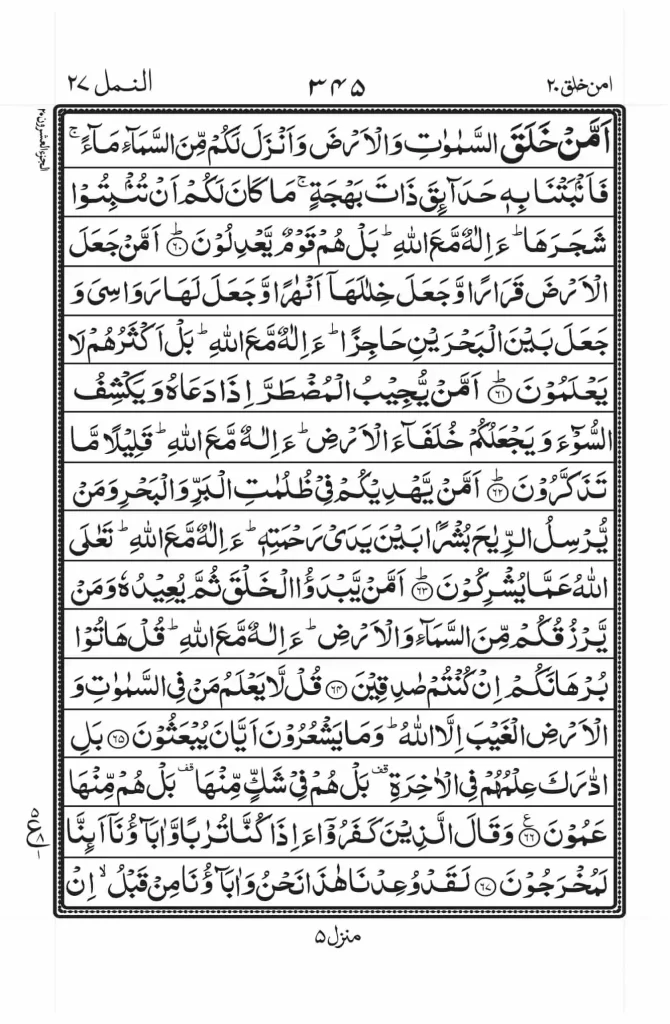 امن خلق ٢٠
٣٤٥
النمل ٢٧
الجزء العشرون ٢٠
اَمَّنْ خَلَقَ السَّمٰوٰتِ وَالْاَرْضَ وَاَنْزَلَ لَكُمْ مِّنَ السَّمَآءِ مَآءً ۚ
فَاَنْۢبَتْنَا بِهٖ حَدَآئِقَ ذَاتَ بَهْجَةٍ ۚ مَا كَانَ لَكُمْ اَنْ تُنْۢبِتُوْا
شَجَرَهَا ؕ ءَاِلٰهٌ مَّعَ اللّٰهِ ؕ بَلْ هُمْ قَوْمٌ يَّعْدِلُوْنَ ؕ‏﴿۶۰﴾ اَمَّنْ جَعَلَ
الْاَرْضَ قَرَارًا وَّجَعَلَ خِلٰلَهَاۤ اَنْهٰرًا وَّجَعَلَ لَهَا رَوَاسِىَ وَ
جَعَلَ بَيْنَ الْبَحْرَيْنِ حَاجِزًا ؕ ءَاِلٰهٌ مَّعَ اللّٰهِ ؕ بَلْ اَكْثَرُهُمْ لَا
يَعْلَمُوْنَ ؕ‏﴿۶۱﴾ اَمَّنْ يُّجِيْبُ الْمُضْطَرَّ اِذَا دَعَاهُ وَيَكْشِفُ
السُّوْٓءَ وَيَجْعَلُكُمْ خُلَفَآءَ الْاَرْضِ ؕ ءَاِلٰهٌ مَّعَ اللّٰهِ ؕ قَلِيْلًا مَّا
تَذَكَّرُوْنَ ؕ‏﴿۶۲﴾ اَمَّنْ يَّهْدِيْكُمْ فِىْ ظُلُمٰتِ الْبَرِّ وَالْبَحْرِ وَمَنْ
يُّرْسِلُ الرِّيٰحَ بُشْرًۢا بَيْنَ يَدَىْ رَحْمَتِهٖ ؕ ءَاِلٰهٌ مَّعَ اللّٰهِ ؕ تَعٰلَى
اللّٰهُ عَمَّا يُشْرِكُوْنَ ؕ‏﴿۶۳﴾ اَمَّنْ يَّبْدَؤُا الْخَلْقَ ثُمَّ يُعِيْدُهٗ وَمَنْ
يَّرْزُقُكُمْ مِّنَ السَّمَآءِ وَالْاَرْضِ ؕ ءَاِلٰهٌ مَّعَ اللّٰهِ ؕ قُلْ هَاتُوْا
بُرْهَانَكُمْ اِنْ كُنْتُمْ صٰدِقِيْنَ ‏﴿۶۴﴾ قُلْ لَّا يَعْلَمُ مَنْ فِى السَّمٰوٰتِ وَ
الْاَرْضِ الْغَيْبَ اِلَّا اللّٰهُ ؕ وَمَا يَشْعُرُوْنَ اَيَّانَ يُبْعَثُوْنَ ‏﴿۶۵﴾ بَلِ
ادّٰرَكَ عِلْمُهُمْ فِى الْاٰخِرَةِ قف بَلْ هُمْ فِىْ شَكٍّ مِّنْهَا قف بَلْ هُمْ مِّنْهَا
عَمُوْنَ ‏﴿۶۶﴾ ع وَقَالَ الَّذِيْنَ كَفَرُوْۤا ءَاِذَا كُنَّا تُرٰبًا وَّاٰبَآؤُنَاۤ اَئِنَّا
لَمُخْرَجُوْنَ ‏﴿۶۷﴾ لَقَدْ وُعِدْنَا هٰذَا نَحْنُ وَاٰبَآؤُنَا مِنْ قَبْلُ ۙ اِنْ
منزل ۵